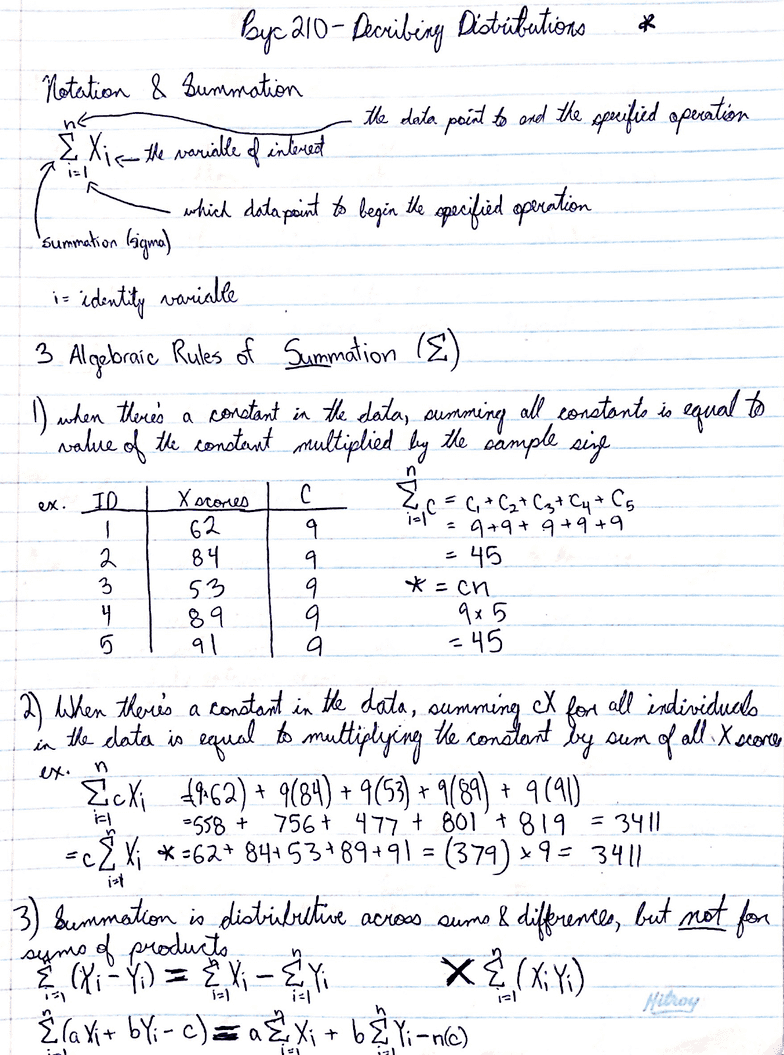 Psyc 210 - Decribing Distributions *
Notation & Summation
n the data point to end the specified operation
Σ Xi ← the variable of interest
i=1
which datapoint to begin the specified operation
summation (sigma)
i = identity variable
3 Algebraic Rules of Summation (Σ)
1) when there's a constant in the data, summing all constants is equal to
value of the constant multiplied by the sample size
ex. ID | X scores | C
1 | 62 | 9
2 | 84 | 9
3 | 53 | 9
4 | 89 | 9
5 | 91 | 9
n
Σ C = C1 + C2 + C3 + C4 + C5
i=1
= 9+9+ 9+9+9
= 45
* = cn
9 x 5
= 45
2) When there's a constant in the data, summing cX for all individuals
in the data is equal to multiplying the constant by sum of all X scores
ex. n
Σ cXi =(9·62) + 9(84) + 9(53) + 9(89) + 9(91)
i=1
=558 + 756 + 477 + 801 + 819 = 3411
n
= c Σ Xi * =62+ 84+53+89+91 = (379) x 9 = 3411
i=1
3) Summation is distributive across sums & differences, but not for
sums of products
n n n n
Σ (Xi - Yi) = Σ Xi - Σ Yi X Σ (XiYi)
i=1 i=1 i=1 i=1
Hilroy
n n n
Σ(aXi + bYi - c) = a Σ Xi + b Σ Yi - n(c)
i=1 i=1 i=1